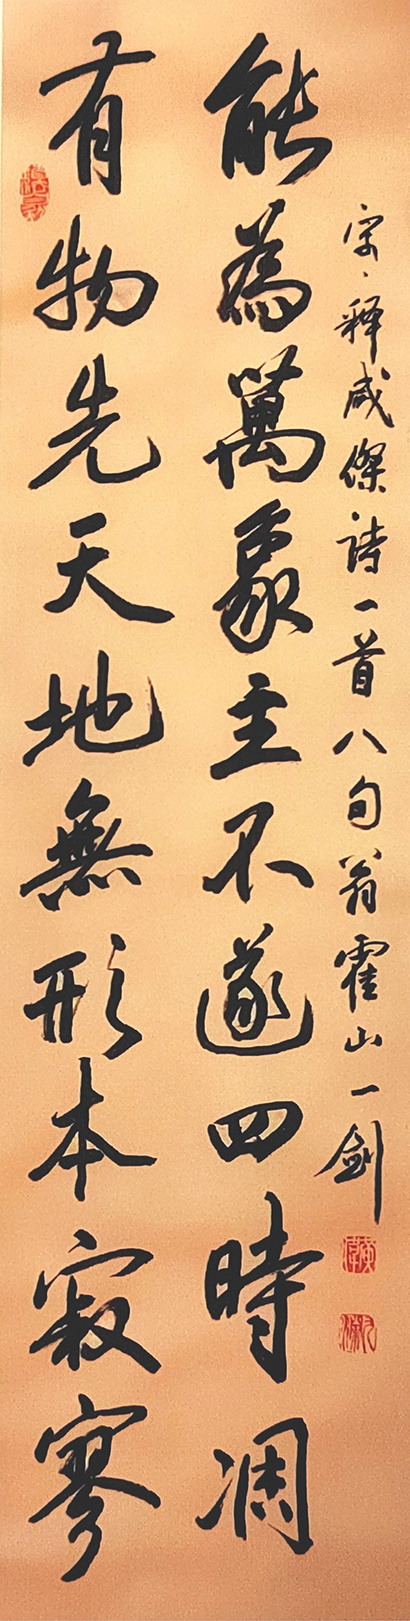 有物先天地無形本寂寥
能為萬象主不遂四時凋
宋、釋咸傑詩一首八句翁霍山一劍